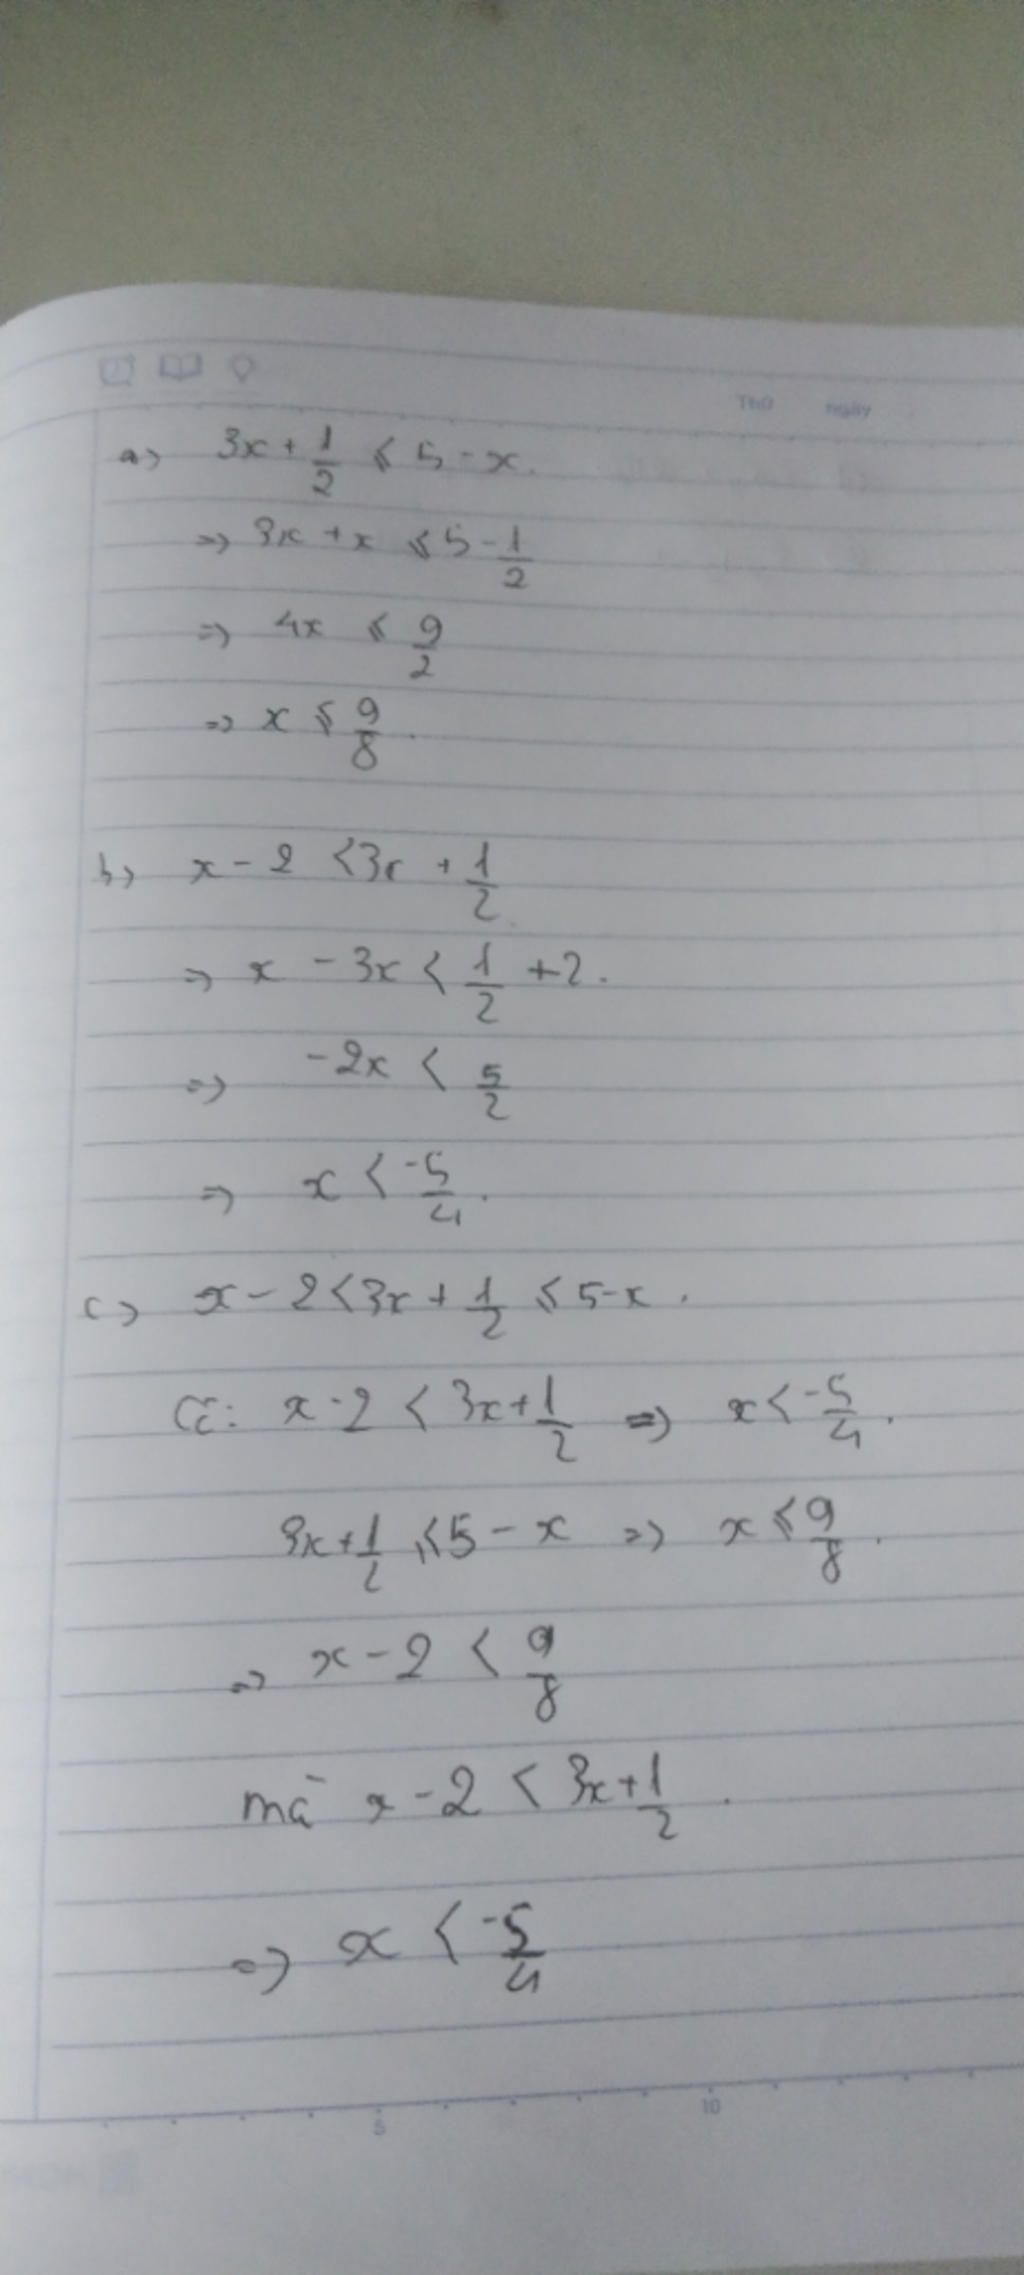 Thứ ngày
a) 3x + 1/2 ⩽ 5 - x.
=> 3x + x ⩽ 5 - 1/2
=> 4x ⩽ 9/2
=> x ⩽ 9/8.
b) x - 2 < 3x + 1/2
=> x - 3x < 1/2 + 2.
=> -2x < 5/2
=> x < -5/4.
c) x - 2 < 3x + 1/2 ⩽ 5 - x.
Có: x - 2 < 3x + 1/2 => x < -5/4.
3x + 1/2 ⩽ 5 - x => x ⩽ 9/8.
=> x - 2 < 9/8
mà x - 2 < 3x + 1/2.
=> x < -5/4
5 10